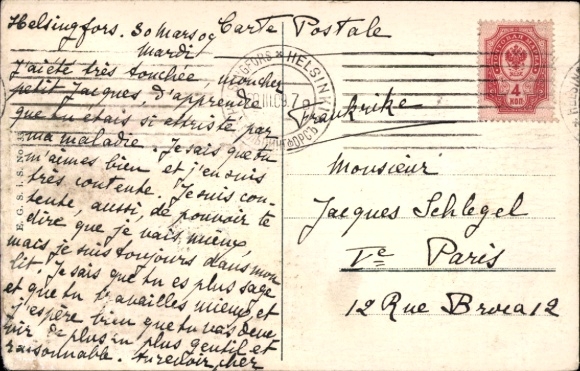 Helsingfors. 30 Mars 09
Carte Postale
Mardi
J'ai été très touchée mon cher
petit Jacques, d'apprendre
que tu étais si attristé par
ma maladie. Je sais que tu
m'aimes bien et j'en suis
très contente. Je suis con-
tente, aussi, de pouvoir te
dire que je vais mieux,
mais je suis toujours dans mon
lit. Je sais que tu es plus sage
et que tu travailles mieux, et
j'espère bien que tu vas deve
nir de plus en plus gentil et
raisonnable. Au revoir, cher
HELSINKI
III.09.7
4
КОП
Frankrike
Monsieur
Jacques Schlegel
Ve Paris
12 Rue Broca 12
E. G. S. i. S. No